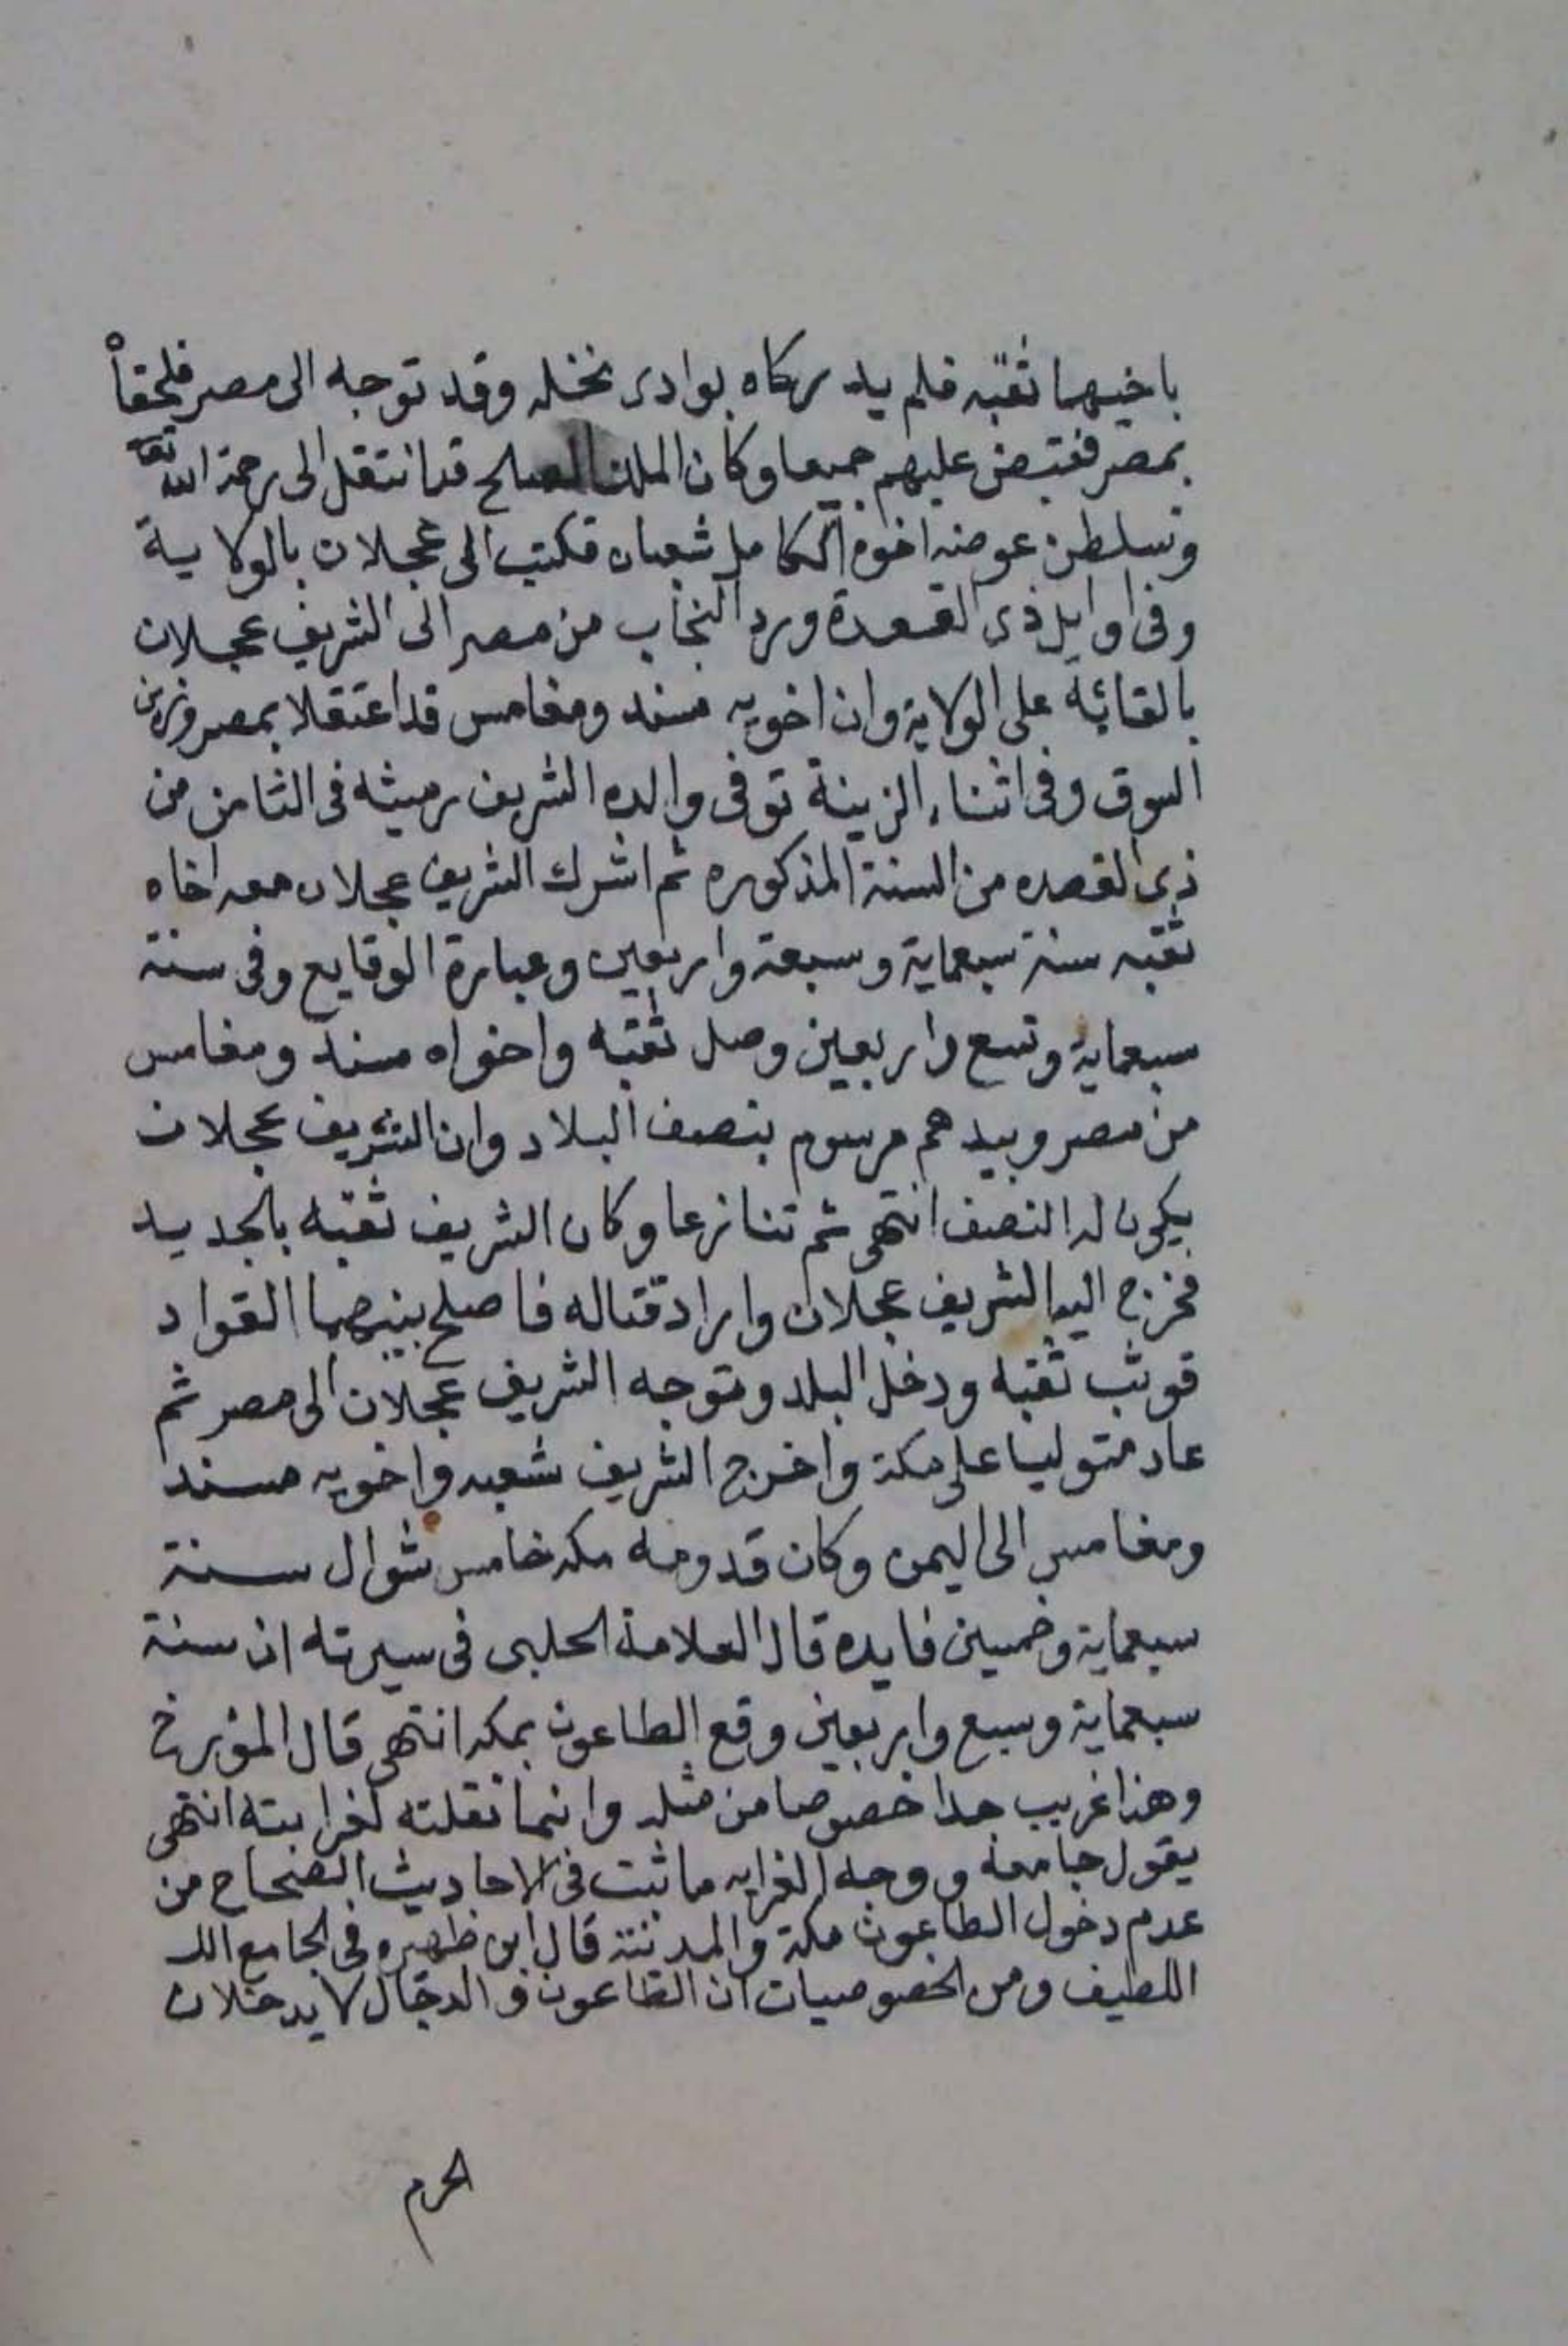 باخيهما ثقبه فلم يدركاه بوادى نخله وقد توجه الى مصر فلحقاه
بمصر فقبض عليهم جميعا وكان الملك الصالح قد انتقل الى رحمة الله تعا
وتسلطن عوضه اخوه الكامل شعبان فكتب الى عجلان بالولاية
وفى اوايل ذى القعدة ورد النجاب من مصر الى الشريف عجلان
على الولاية وان اخويه مسند ومغامس قد اعتقلا بمصر وزين
السوق وفى اثناء الزينة توفى والده الشريف رميثه فى الثامن من
ذى القعده من السنة المذكوره ثم اشرك الشريف عجلان معه اخاه
ثقبه سنة سبعماية وسبعة واربعين وعبارة الوقايع وفى سنة
سبعماية وتسع واربعين وصل ثقبه واخواه مسند ومغامس
من مصر وبيدهم مرسوم بنصف البلاد وان الشريف عجلان
يكون له النصف انتهى ثم تنازعا وكان الشريف ثقبه بالجديد
فخرج اليه الشريف عجلان واراد قتاله فاصلح بينهما القواد
فوثب ثقبه ودخل البلد وتوجه الشريف عجلان الى مصر ثم
عاد متوليا على مكة واخرج الشريف شعبه واخويه مسندا
ومغامس الى اليمن وكان قدومه مكه خامس شوال سنة
سبعماية وخمسين فايده قال العلامة الحلبى فى سيرته ان سنة
سبعماية وسبع واربعين وقع الطاعون بمكه انتهى قال المؤرخ
وهذا غريب جدا خصوصا من مثله وانما نقلته لغرابته انتهى
يقول جامعه ووجه الغرابه ما ثبت فى الاحاديث الصحاح من
عدم دخول الطاعون مكة والمدينة قال ابن ظهيره فى الجامع الل
اللطيف ومن الخصوصيات ان الطاعون والدجال لا يدخلان
الحرم